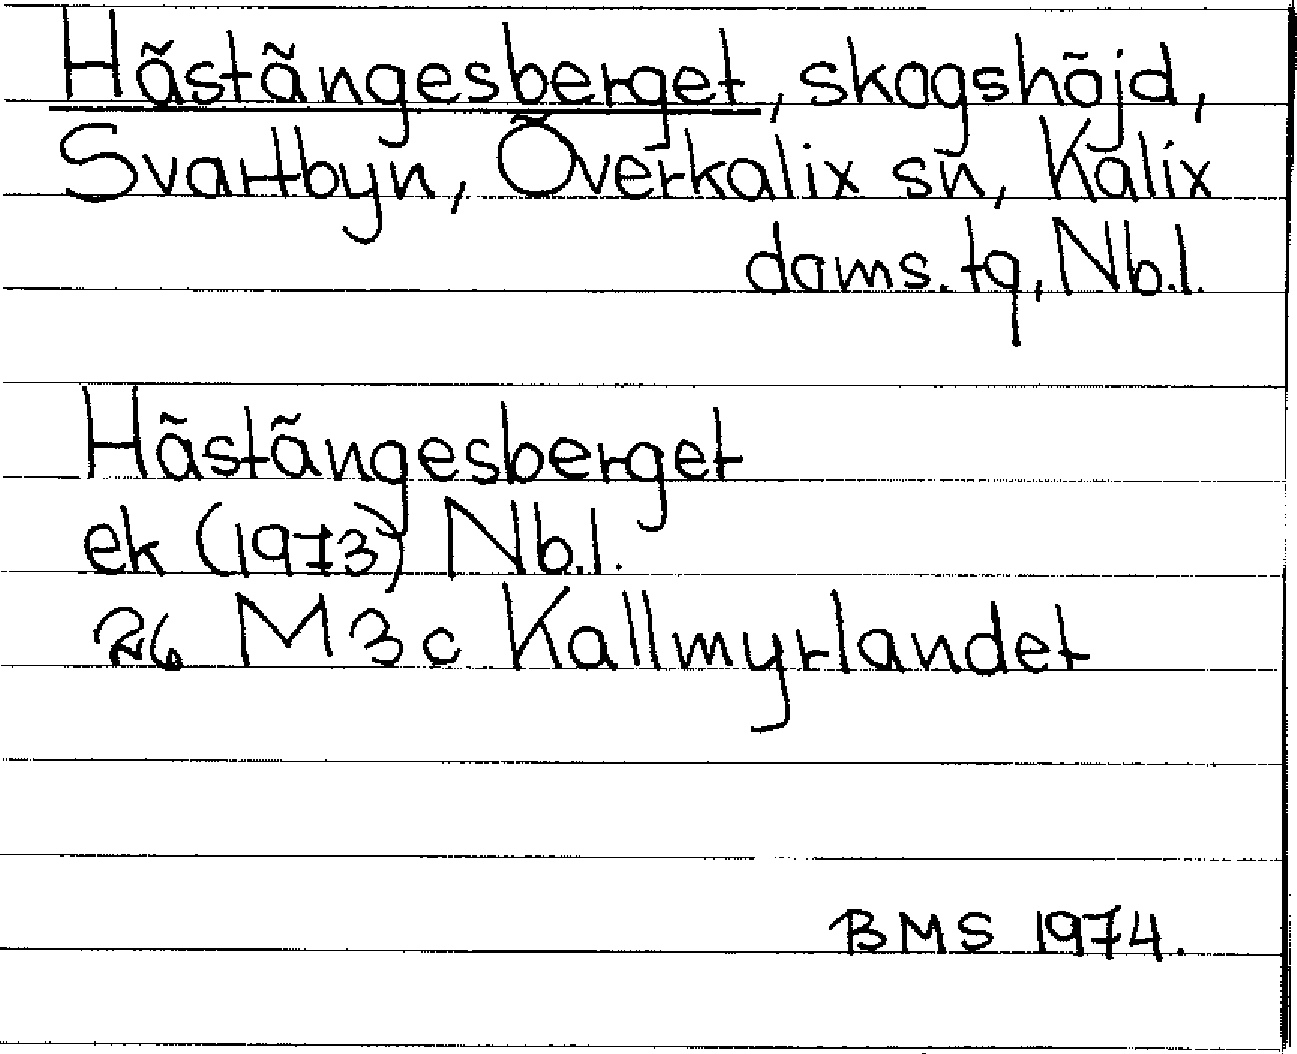 Hästängesberget, skogshöjd,
Svartbyn, Överkalix sn, Kalix
doms. tg, Nb.l.
Hästängesberget
ek (1973) Nb.l.
26 M 3c Kallmyrlandet
BMS 1974.